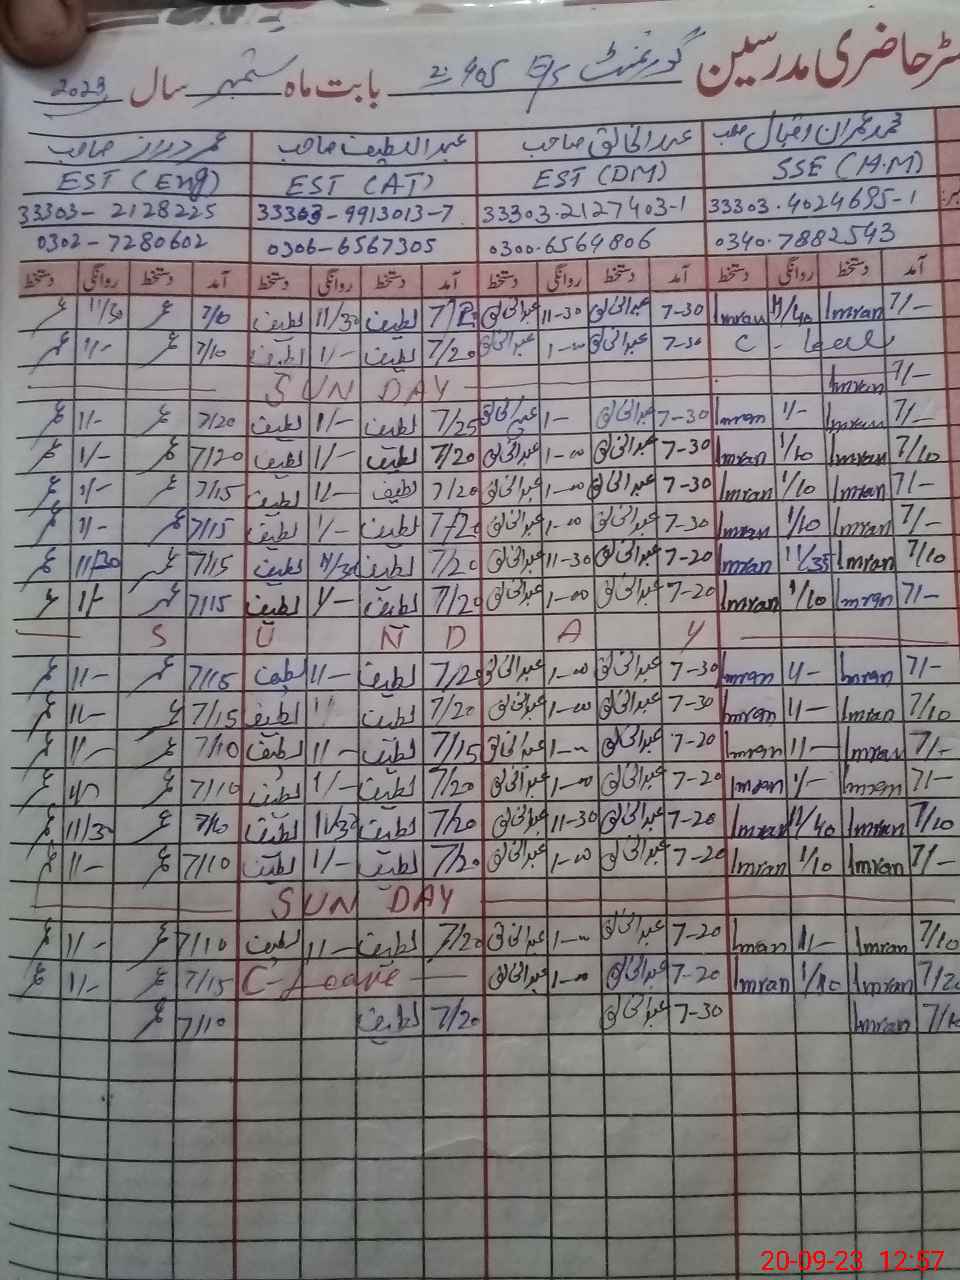 رجسٹر حاضری مدرسین گورنمنٹ E/S 405 بابت ماہ ستمبر سال 2023
محمد عمران اقبال صاحب عبدالخالق صاحب عبداللطیف صاحب عمر دراز صاحب
SSE (H.M) EST (DM) EST (AT) EST (Eng)
33303.4024695-1 33303.2127403-1 33303-9913013-7 33303-2128225
0340.7882543 0300.6564806 0306-6567305 0302-7280602
آمد دستخط روانگی دستخط آمد دستخط روانگی دستخط آمد دستخط روانگی دستخط آمد دستخط روانگی دستخط
7/- Imran 11/40 Imran 7-30 عبدالخالق 11-30 عبدالخالق لطیف 11/30 لطیف 7/10 عمر 11/30 عمر
C- 7-30 عبدالخالق 1-00 عبدالخالق 7/20 لطیف 1/- لطیف 7/10 عمر 1/- عمر
7/- Imran SUNDAY
7/- Imran 1/- Imran 7-30 عبدالخالق 1- عبدالخالق 7/25 لطیف 1/- لطیف 7/20 عمر 1/- عمر
7/10 Imran 1/10 Imran 7-30 عبدالخالق 1-00 عبدالخالق 7/20 لطیف 1/- لطیف 7/20 عمر 1/- عمر
7/- Imran 1/10 Imran 7-30 عبدالخالق 1-00 عبدالخالق 7/20 لطیف 1/- لطیف 7/15 عمر 1/- عمر
7/- Imran 1/10 Imran 7-30 عبدالخالق 1-00 عبدالخالق 7/20 لطیف 1/- لطیف 7/15 عمر 1/- عمر
7/10 Imran 11/35 Imran 7-20 عبدالخالق 11-30 عبدالخالق 7/20 لطیف 11/30 لطیف 7/15 عمر 11/30 عمر
7/- Imran 1/10 Imran 7-20 عبدالخالق 1-00 عبدالخالق 7/20 لطیف 1/- لطیف 7/15 عمر 1/- عمر
S U N D A Y
7/- Imran 1/- Imran 7-30 عبدالخالق 1-00 عبدالخالق 7/20 لطیف 1/- لطیف 7/15 عمر 1/- عمر
7/10 Imran 1/- Imran 7-30 عبدالخالق 1-00 عبدالخالق 7/20 لطیف لطیف 7/15 عمر 1/- عمر
7/- Imran 1/- Imran 7-20 عبدالخالق 1-00 عبدالخالق 7/15 لطیف 1/- لطیف 7/10 عمر 1/- عمر
7/- Imran 1/- Imran 7-20 عبدالخالق 1-00 عبدالخالق 7/20 لطیف 1/- لطیف 7/10 عمر عمر
7/10 Imran 11/40 Imran 7-20 عبدالخالق 11-30 عبدالخالق 7/20 لطیف 11/30 لطیف 7/10 عمر 11/30 عمر
7/- Imran 1/10 Imran 7-20 عبدالخالق 1-00 عبدالخالق 7/20 لطیف 1/- لطیف 7/10 عمر 1/- عمر
SUN DAY
7/10 Imran 1/- Imran 7-20 عبدالخالق 1-00 عبدالخالق 7/20 لطیف 1/- لطیف 7/10 عمر 1/- عمر
7/20 Imran 1/10 Imran 7-20 عبدالخالق 1-00 عبدالخالق C-Leave 7/15 عمر 1/- عمر
7/10 Imran 7-30 عبدالخالق 7/20 لطیف 7/10 عمر
20-09-23 12:57